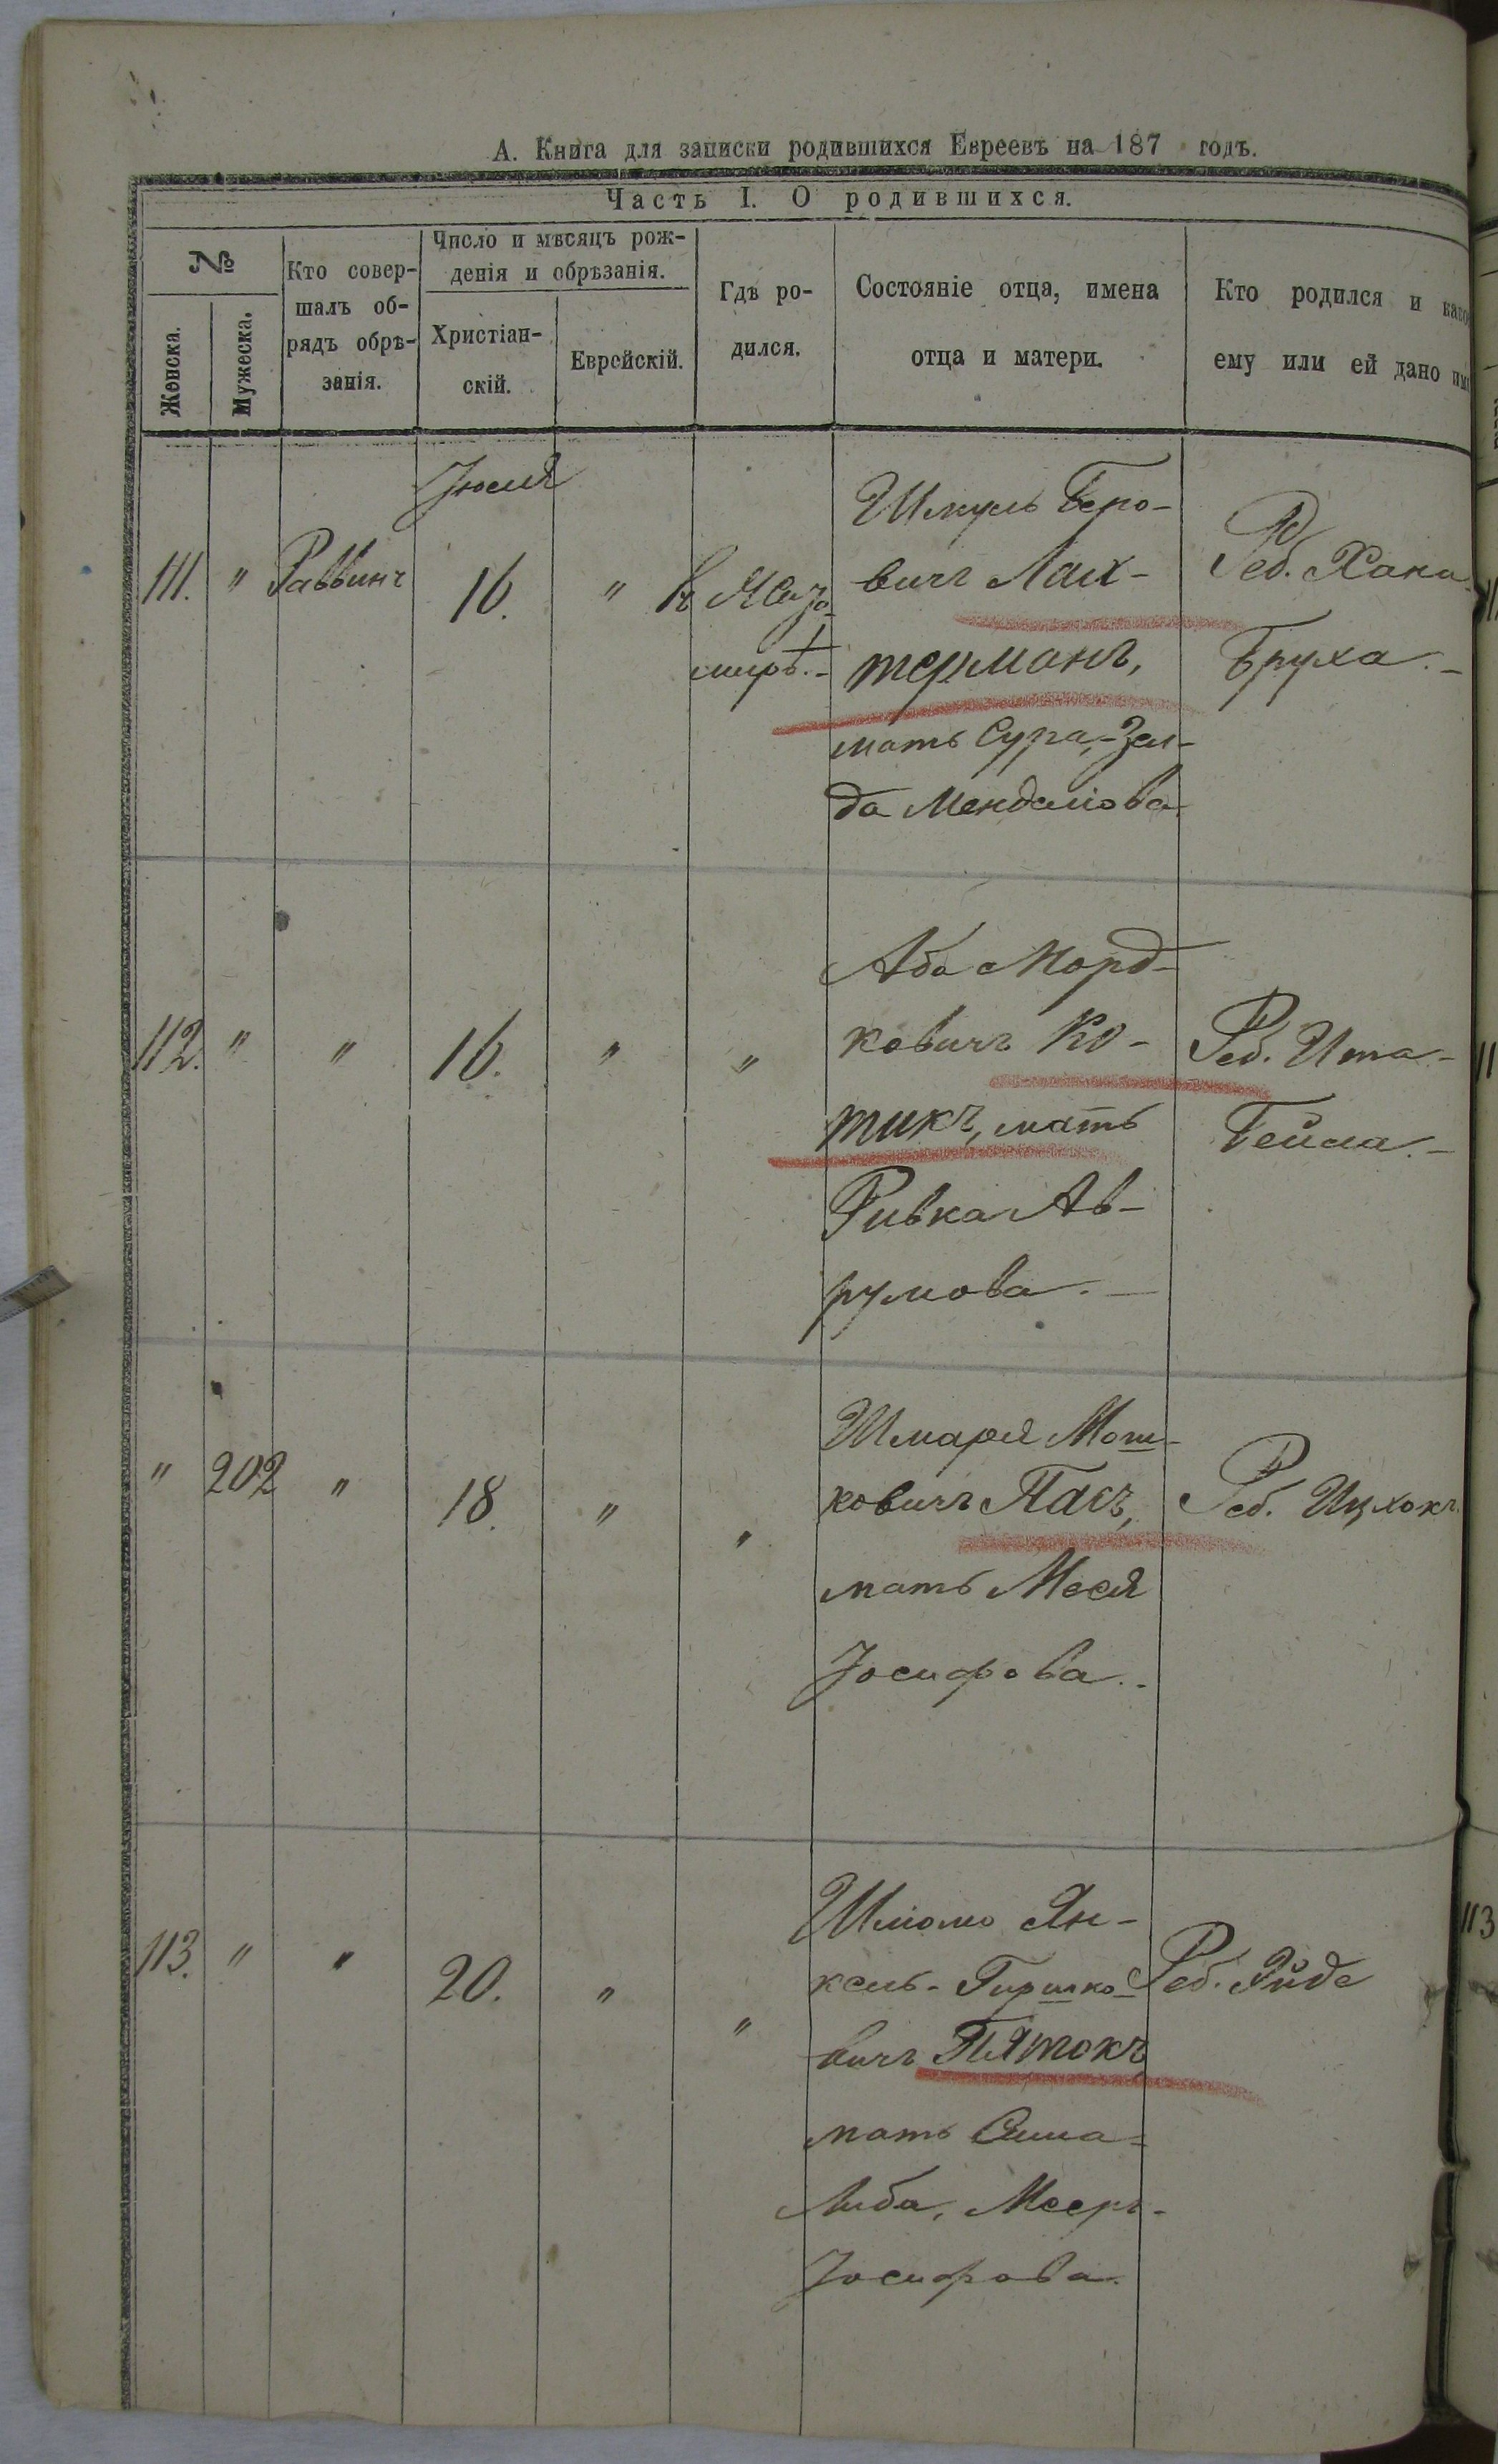 А. Книга для записки родившихся Евреевъ на 187 годъ.
Часть I. О родившихся.
№
Женска.
Мужеска.
Кто совер-
шалъ об-
рядъ обрѣ-
занія.
Число и мѣсяцъ рож-
денія и обрѣзанія.
Христіан-
скій.
Еврейскій.
Гдѣ ро-
дился.
Состояніе отца, имена
отца и матери.
Кто родился и како
ему или ей дано им
Іюля
111. " Раввинъ 16. "
мирѣ.-
Шмуль Беро-
вичъ Лах-
терманъ,
мать Сура-Зел-
да Менделiова
Реб. Хана
Бруха.-
112. " " 16. " "
Аба Морд-
ковичъ Ко-
тикъ, мать
Ривка Ав-
румова.-
Реб. Ита-
Бейла.-
" 202 " 18. " "
Шмаря Мош-
ковичъ Пакъ,
мать Меся
Іосифова.-
Реб. Ицхокъ.
113. " " 20. " "
Шлiомо Ян-
кель-Гиршко-
вичъ Пятокъ
мать Сима-
Либа, Меер-
Іосифова.
Реб. Эйде
113